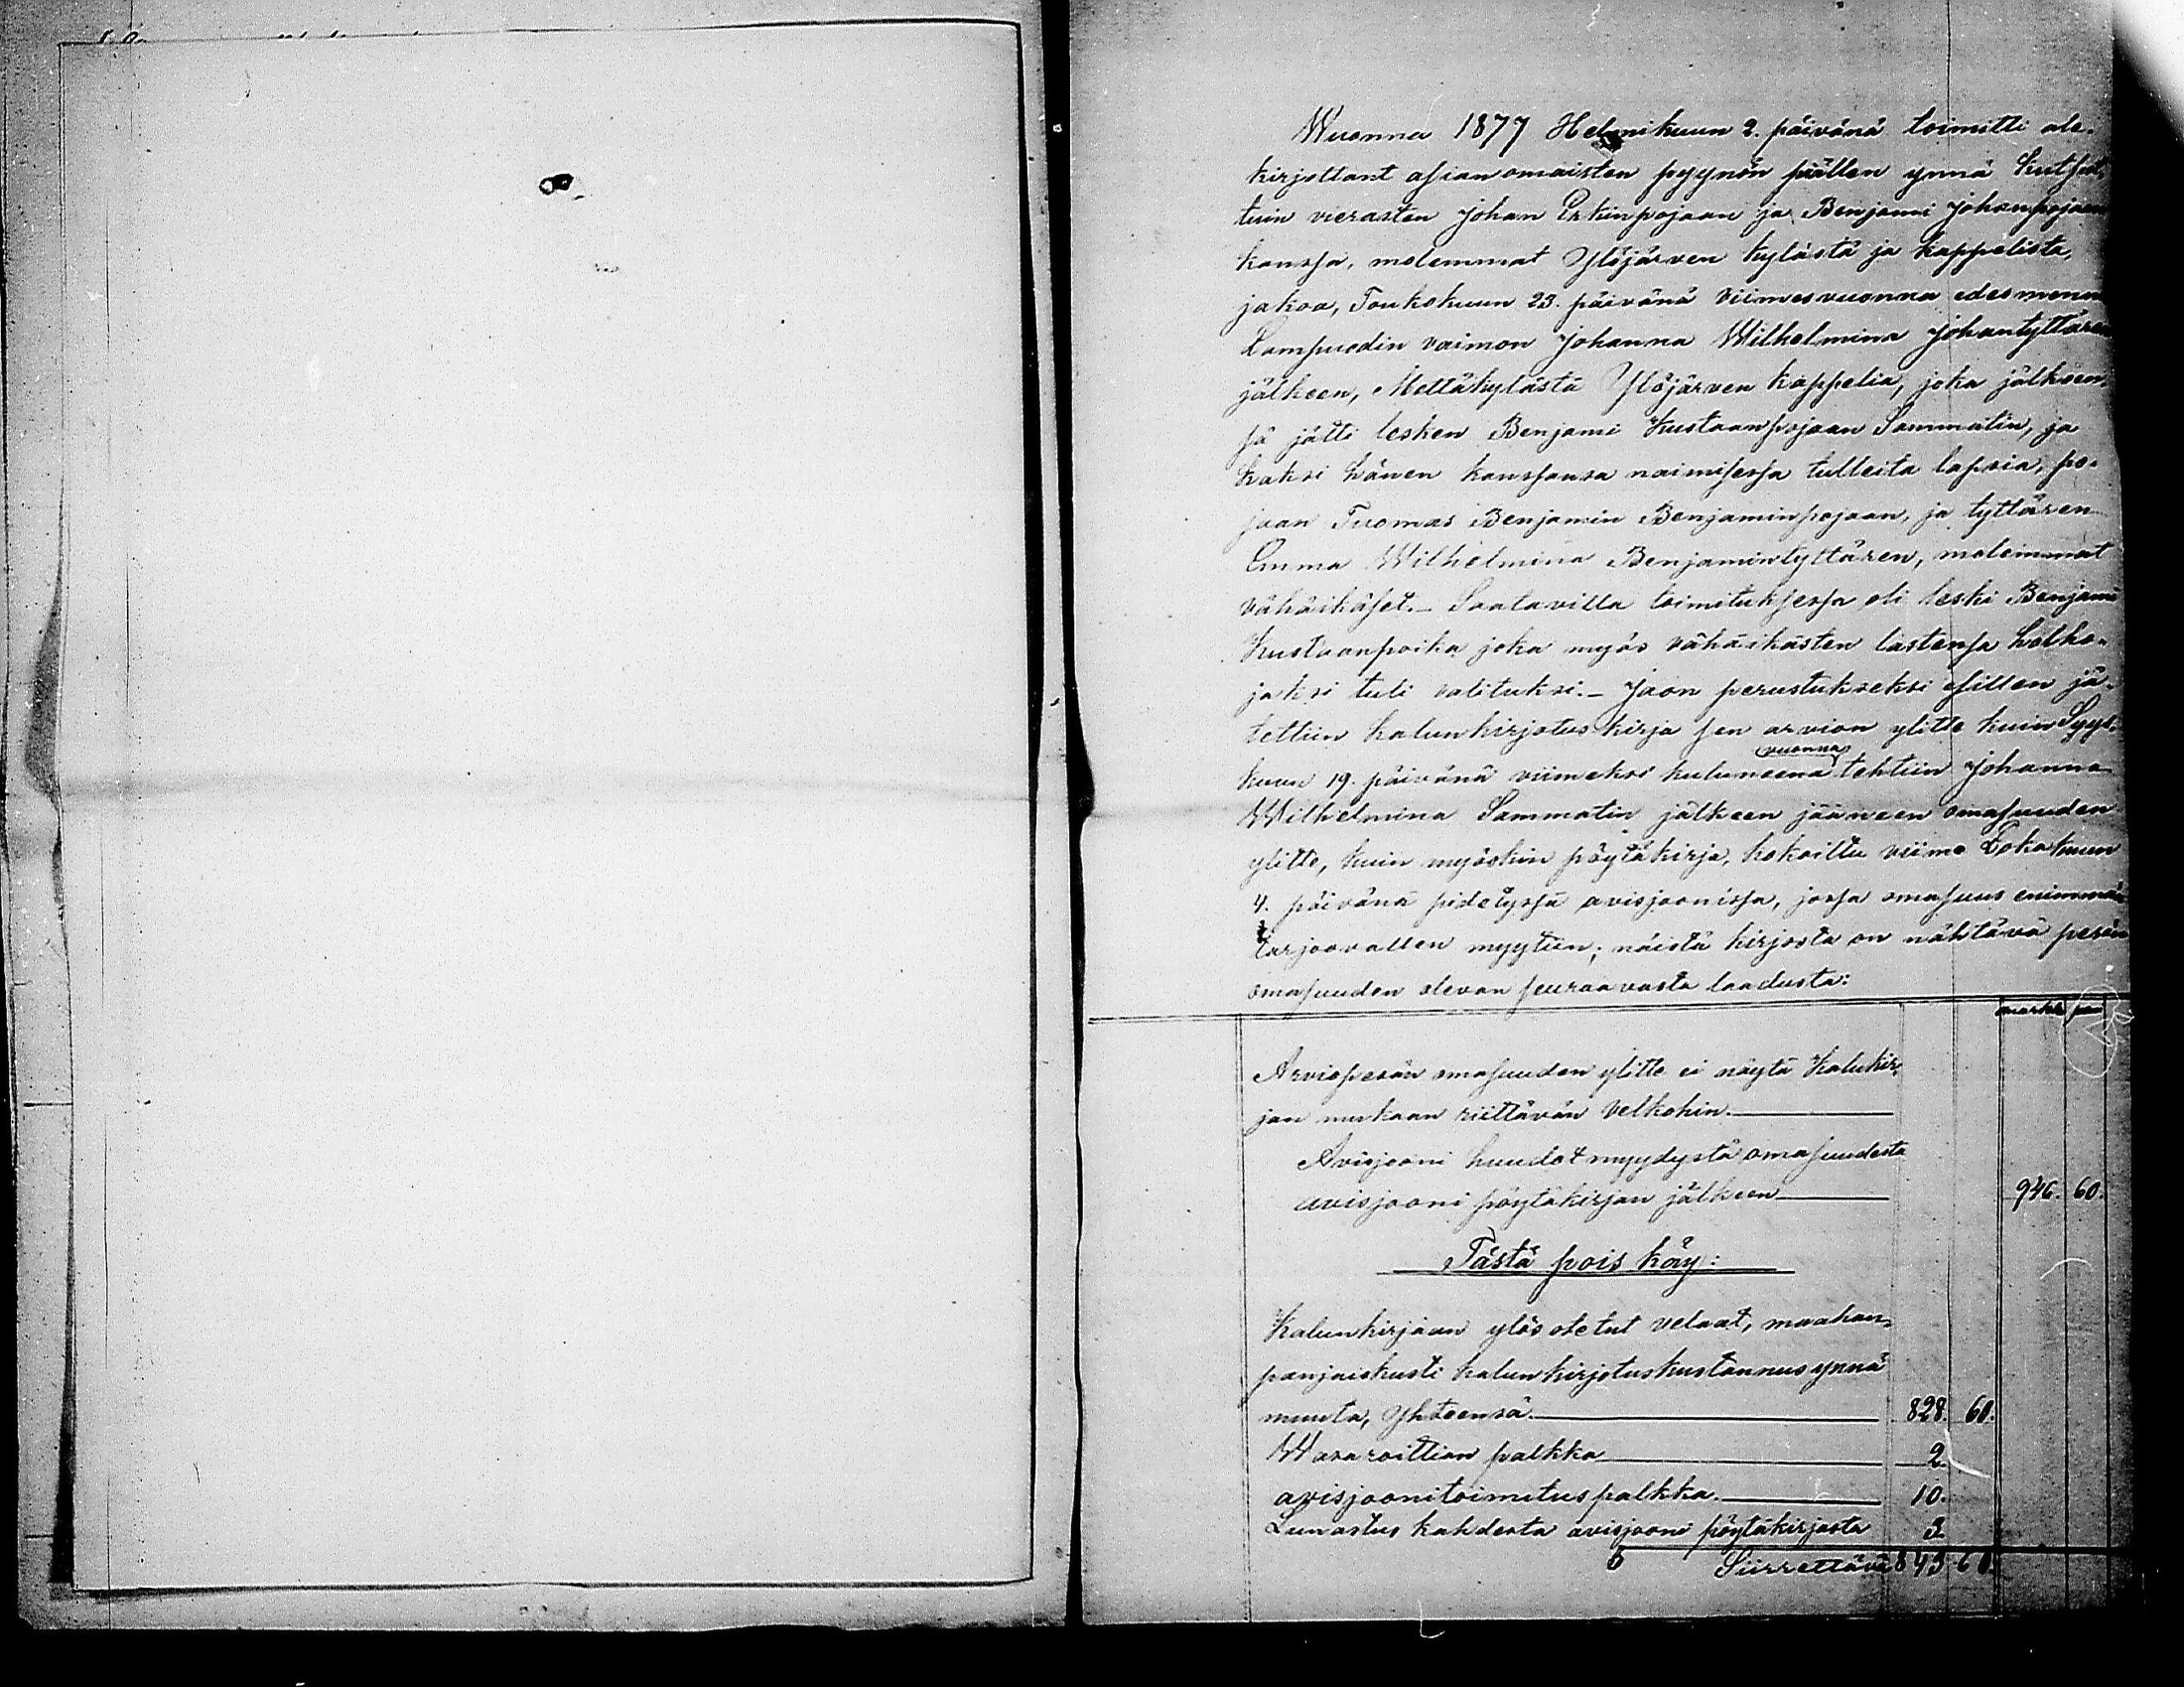 Wuonna 1877 Helmikuun 2. päivänä toimitti ala-
kirjottant asianomaisten pyynön päällen ynnä kutsut-
tuin vierasten Johan Erkinpojaan ja Benjami Johanpojaan
kanssa, molemmat Ylöjärven kylästä ja kappelista,
jakoa, Toukokuun 23. päivänä viimesvuonna edesmenn
Lampuodin vaimon Johanna Wilhelmina Johantyttären
jälkeen, Mettäkylästä Ylöjärven kappelia, joka jälkeen-
sä jätti lesken Benjami Kustaanpojaan Sammatin, ja
kaksi hänen kanssansa naimisessa tulleita lapsia, po-
jaan Tuomas Benjamin Benjaminpojaan, ja tyttären
Emma Wilhelmina Benjamintyttären, molemmat
vähäikäset. - Saatavilla toimituksessa oli leski Benjami
Kustaanpoika joka myös vähäikästen lastensa holho-
jaksi tuli valituksi. - Jaon perustukseksi esillen jä-
tettiin kalunkirjotuskirja sen arvion ylitte kuin Syys-
kuun 19. päivänä viimeksi kuluneena (vuonna) tehtiin Johanna
Wilhelmina Sammatin jälkeen jääneen omasuuden
ylitte, kuin myöskin pöytäkirja, kokoittu viime Lokakuun
4. päivänä pidetyssä avisjoonissa, jossa omasuus enimmän
tarjoovallen myytiin; näistä kirjosta on nähtävä pesän
omasuuden olevan seuraavasta laadusta:
markk pen
Arviopesän omasuuden ylitte ei näytä Kalukir-
jan mukaan riittävän velkohin.
Avisjooni huudot myydystä omasuudesta
avisjooni pöytäkirjan jälkeen 946. 60.
Tästä pois käy:
Kalunkirjaan ylösotetut velaat, maahan-
panjaiskusti kalunkirjotuskustannus ynnä
muuta, Yhteensä. 828. 60.
Wasaroittian palkka 2
avisjoonitoimituspalkka. 10.
Lunastus kahdesta avisjooni pöytäkirjasta 3
Siirrettävä 843 60.